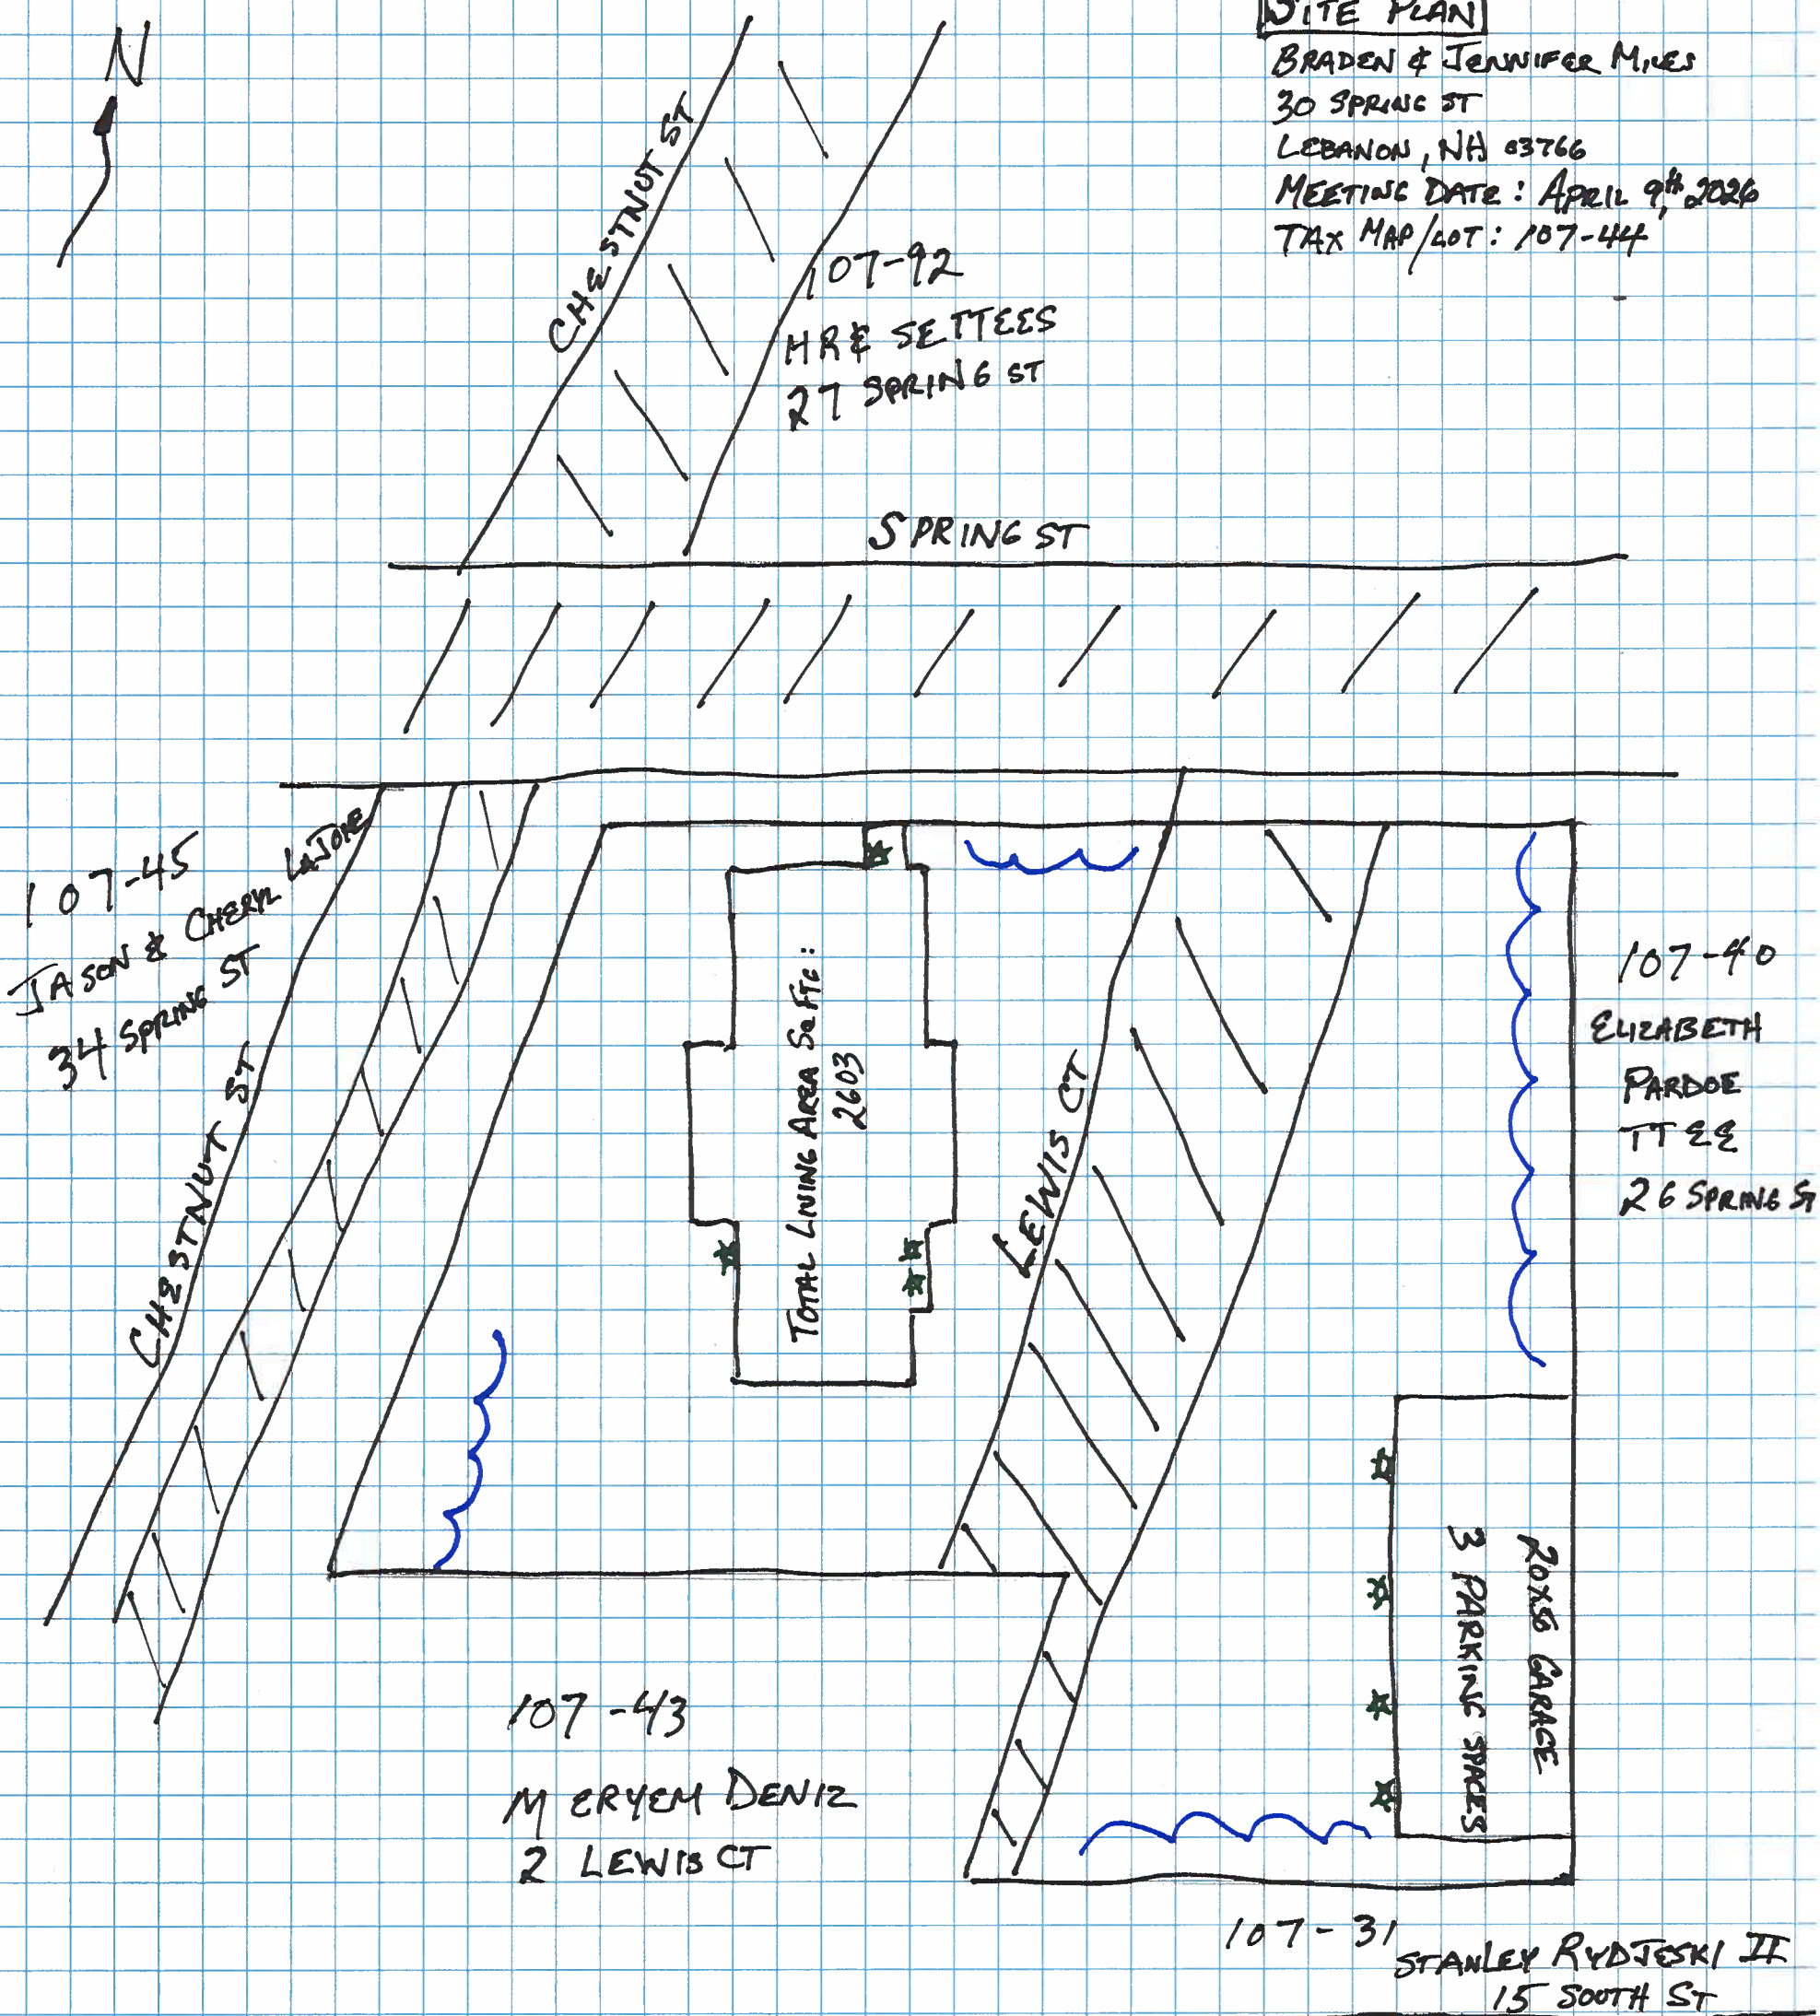 N
SITE PLAN
BRADEN & JENNIFER MILES
30 SPRING ST
LEBANON, NH 03766
MEETING DATE: APRIL 9th, 2026
TAX MAP/LOT: 107-44
CHESTNUT ST
107-92
HR & SE TTEES
27 SPRING ST
SPRING ST
107-45
JASON & CHERYL LAJOIE
34 SPRING ST
CHESTNUT ST
TOTAL LIVING AREA SQ FTG:
2603
LEWIS CT
107-40
ELIZABETH
PARDOE
TTEE
26 SPRING ST
GARAGE
3 PARKING SPACES
107-43
MERYEM DENIZ
2 LEWIS CT
107-31
STANLEY RYDJESKI II
15 SOUTH ST